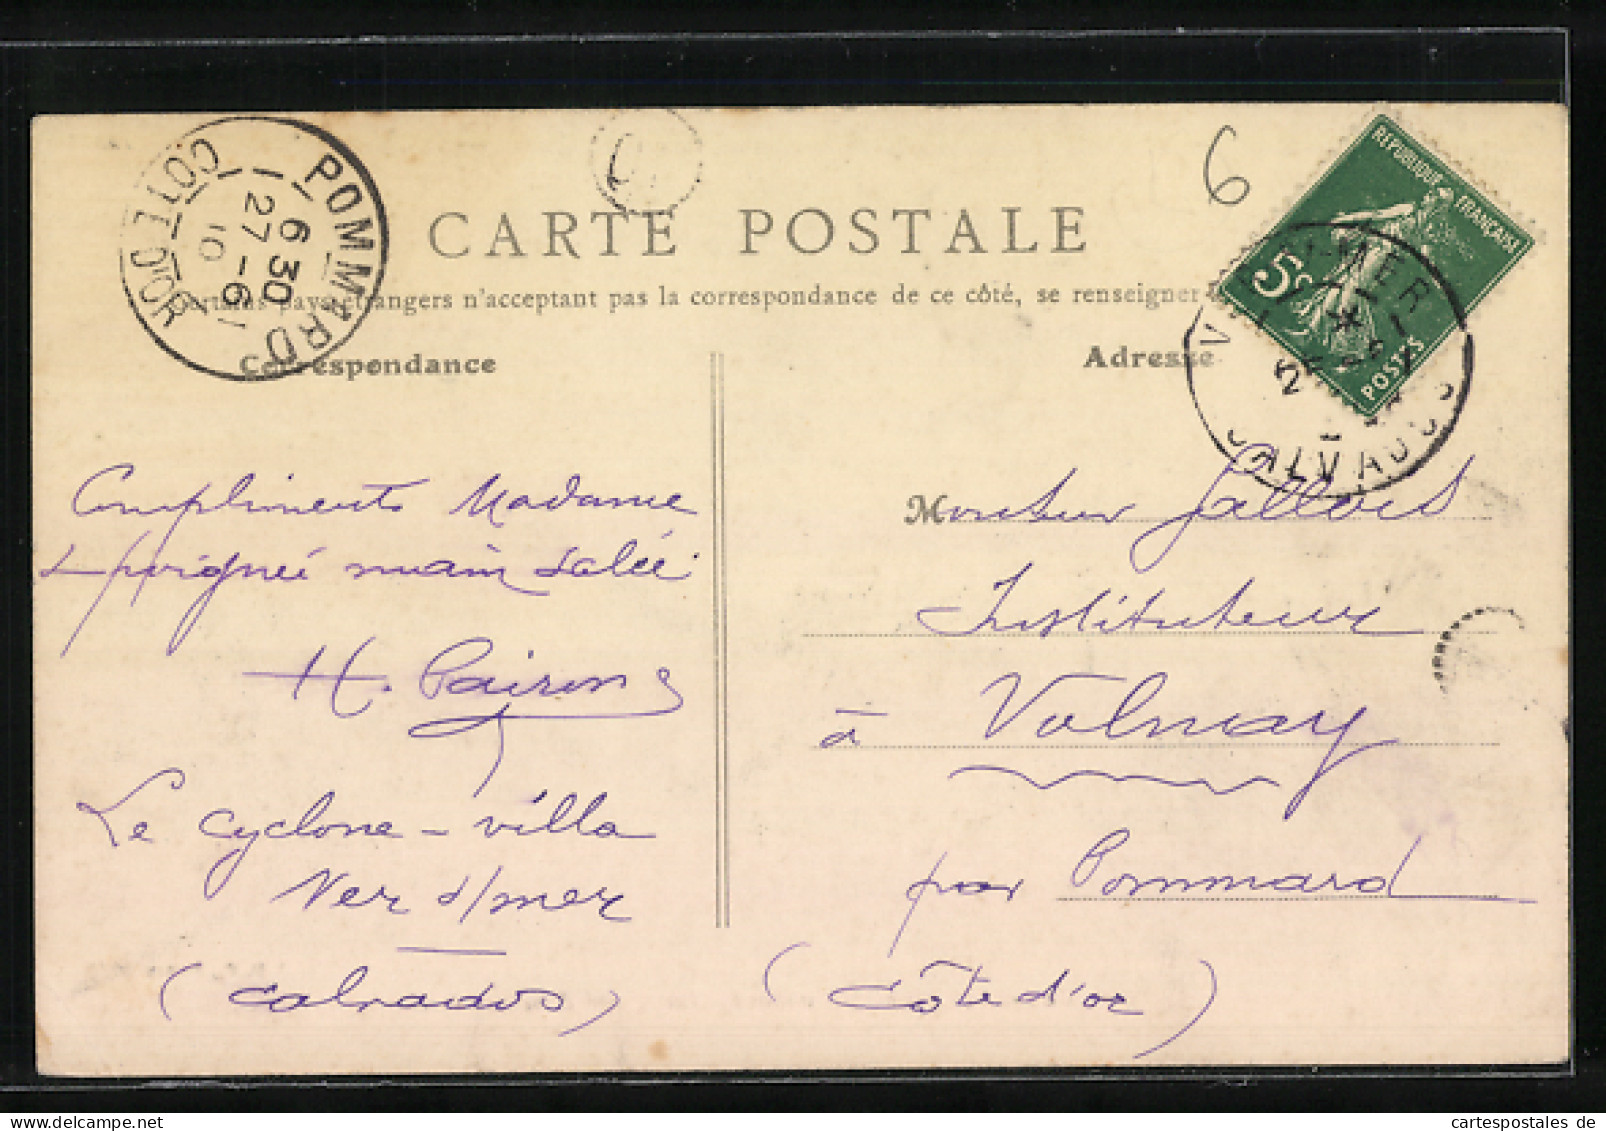 POMMARD
COTE D'OR
6 30
27 - 6
10
6
REPUBLIQUE FRANÇAISE
5c
POSTES
MER
CALVADOS
CARTE POSTALE
Certains pays étrangers n'acceptent pas la correspondance de ce côté, se renseigner
Correspondance
Adresse
Compliments Madame
& poignée main salée
H. Pairon
Le cyclone - villa
Ver s/mer
(Calvados)
Monsieur Gallois
Instituteur
à Volnay
par Pommard
(Côte d'or)
cartespostales de